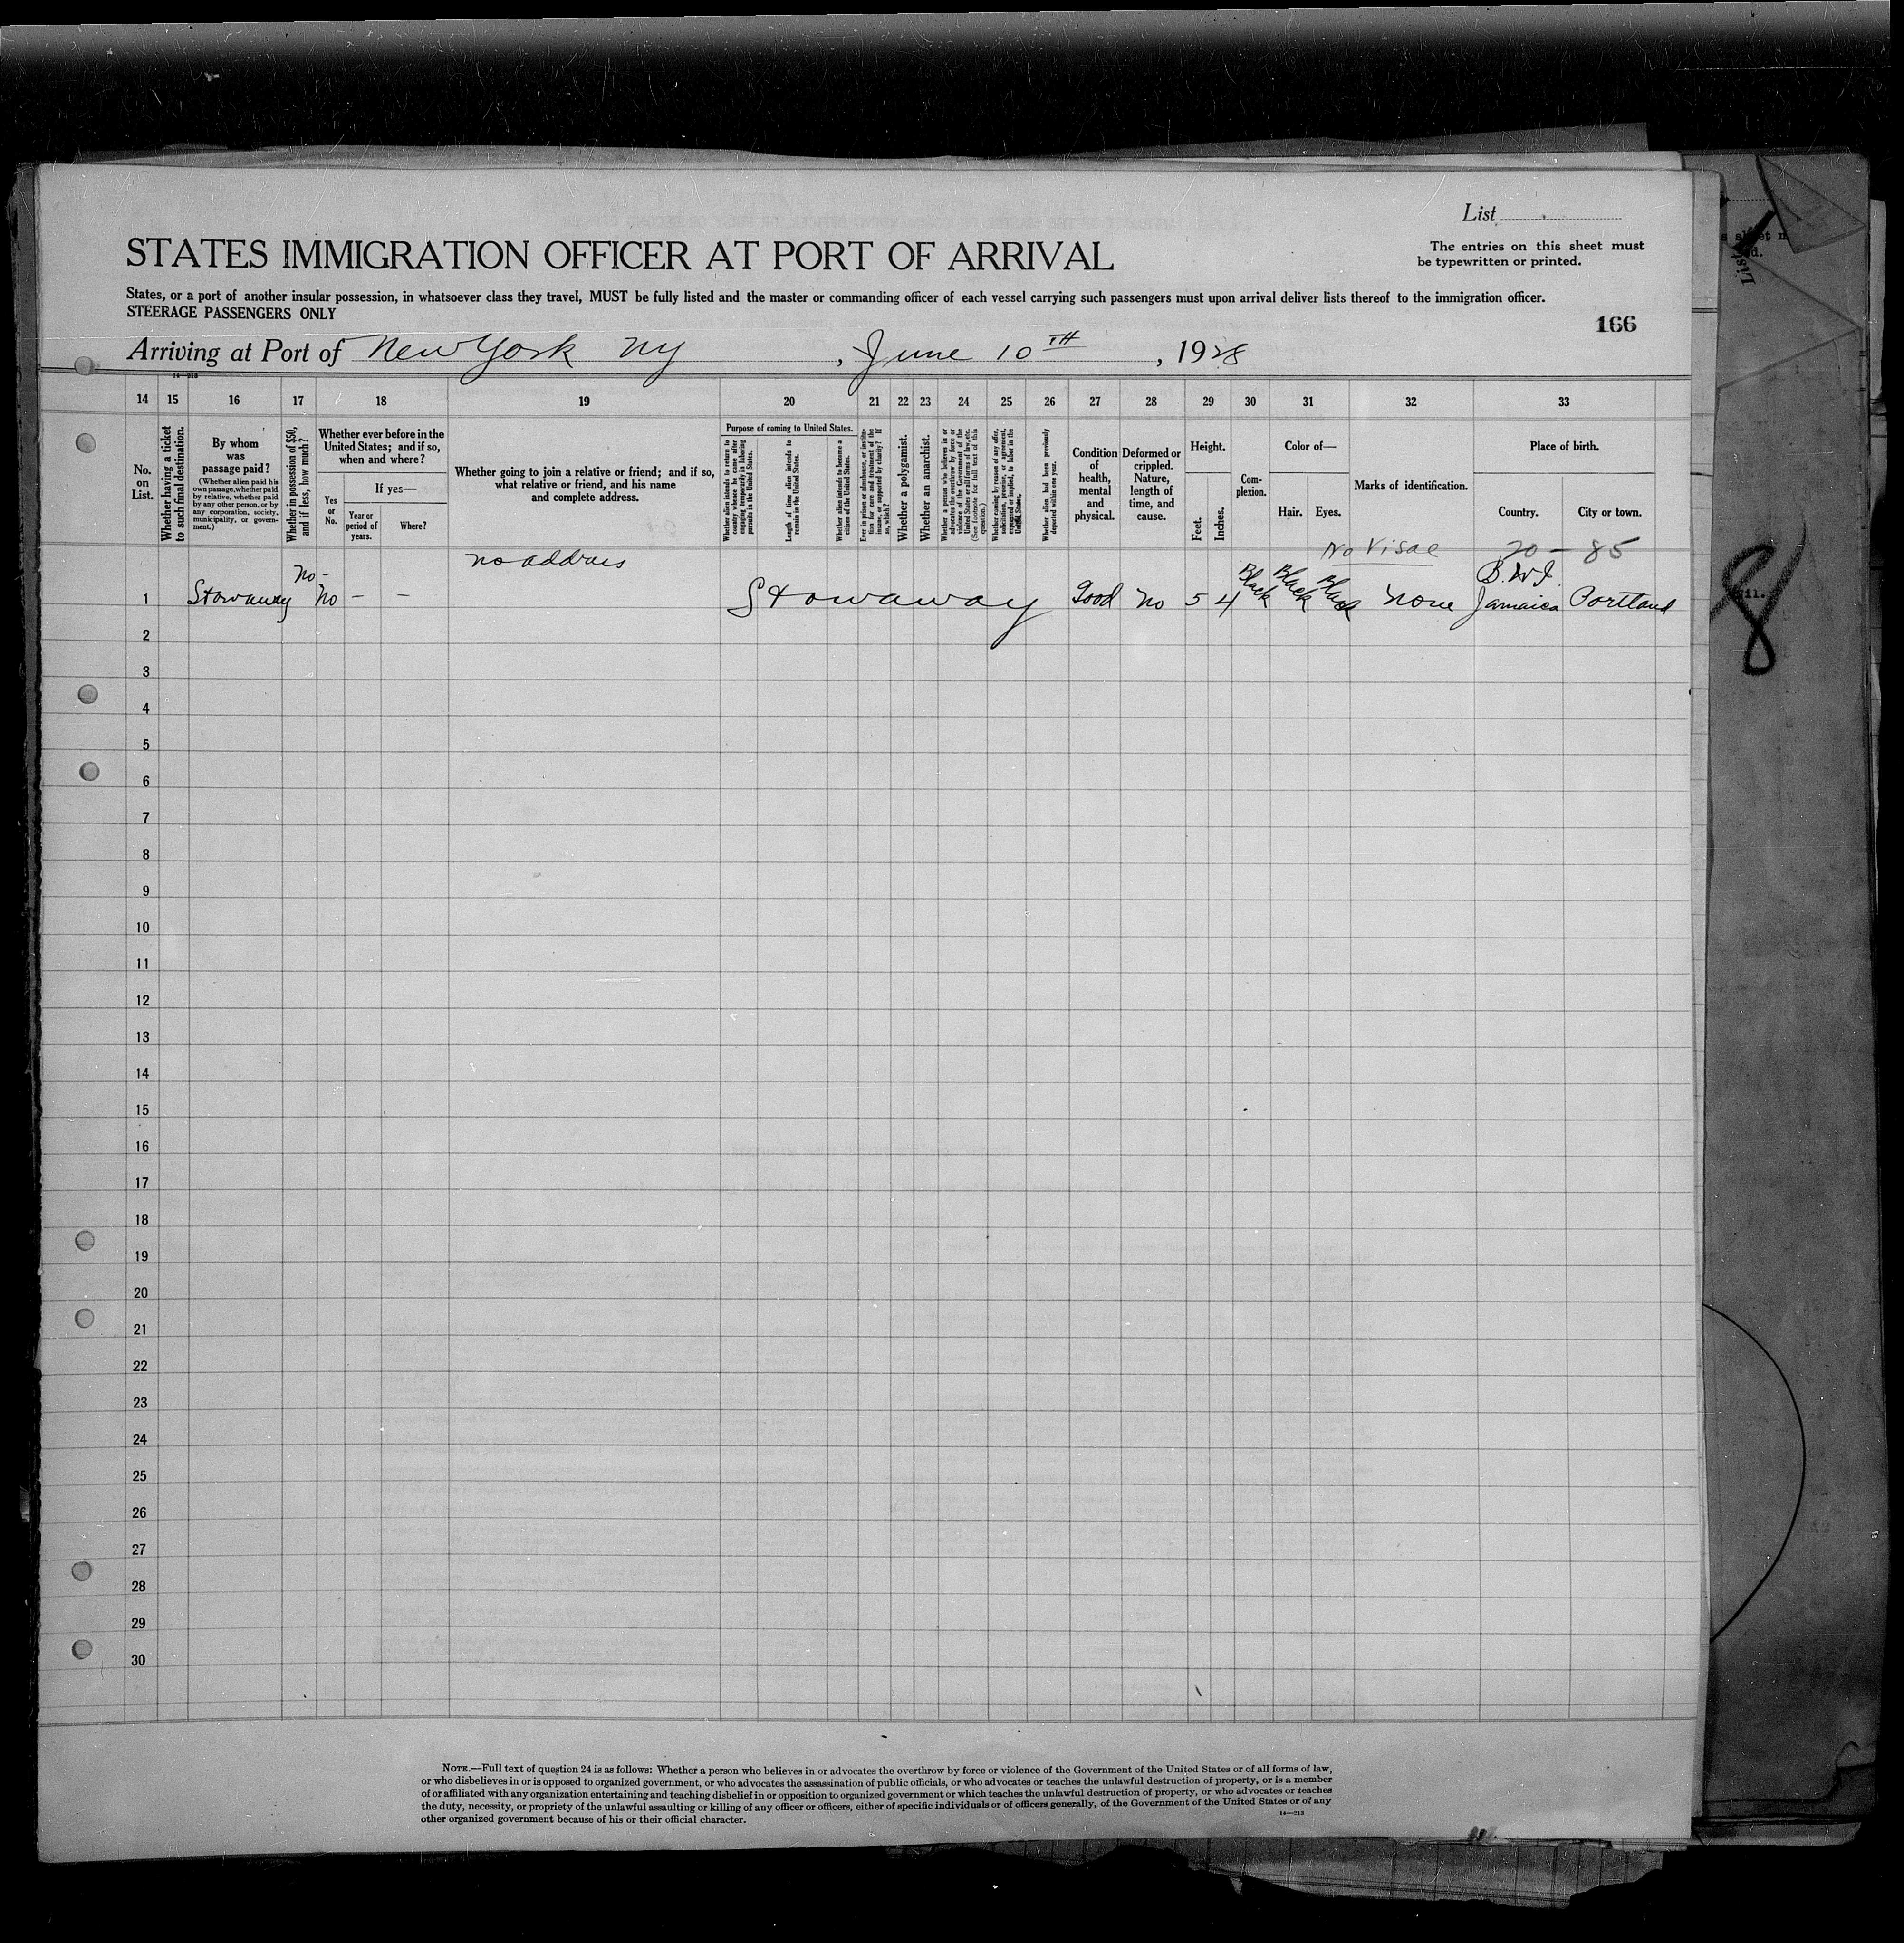 List
STATES IMMIGRATION OFFICER AT PORT OF ARRIVAL
The entries on this sheet must
be typewritten or printed.
States, or a port of another insular possession, in whatsoever class they travel, MUST be fully listed and the master or commanding officer of each vessel carrying such passengers must upon arrival deliver lists thereof to the immigration officer.
STEERAGE PASSENGERS ONLY
166
Arriving at Port of New York NY, June 10TH, 1928
14 15 16 17 18 19 20 21 22 23 24 25 26 27 28 29 30 31 32 33
No. on List.
Whether having a ticket to such final destination.
By whom was passage paid?
(Whether alien paid his own passage, whether paid by relative, whether paid by any other person, or by any corporation, society, municipality, or government.)
Whether in possession of $50, and if less, how much?
Whether ever before in the United States; and if so, when and where?
Yes or No.
If yes—
Year or period of years.
Where?
Whether going to join a relative or friend; and if so, what relative or friend, and his name and complete address.
Purpose of coming to United States.
Whether alien intends to return to country whence he came after engaging temporarily in laboring pursuits in the United States.
Length of time alien intends to remain in the United States.
Whether alien intends to become a citizen of the United States.
Ever in prison or almshouse, or institution for care and treatment of the insane, or supported by charity? If so, which?
Whether a polygamist.
Whether an anarchist.
Whether a person who believes in or advocates the overthrow by force or violence of the Government of the United States or all forms of law, etc. (See footnote for full text of this question.)
Whether coming by reason of any offer, solicitation, promise, or agreement, expressed or implied, to labor in the United States.
Whether alien had been previously deported within one year.
Condition of health, mental and physical.
Deformed or crippled. Nature, length of time, and cause.
Height.
Feet.
Inches.
Complexion.
Color of—
Hair.
Eyes.
Marks of identification.
Place of birth.
Country.
City or town.
no address
No Visae
20 — 85
1 Stowaway No - No — — Stowaway Good no 5 4 Black Black Black None B.W.I. Jamaica Portland
2
3
4
5
6
7
8
9
10
11
12
13
14
15
16
17
18
19
20
21
22
23
24
25
26
27
28
29
30
NOTE.—Full text of question 24 is as follows: Whether a person who believes in or advocates the overthrow by force or violence of the Government of the United States or of all forms of law,
or who disbelieves in or is opposed to organized government, or who advocates the assassination of public officials, or who advocates or teaches the unlawful destruction of property, or is a member
of or affiliated with any organization entertaining and teaching disbelief in or opposition to organized government or which teaches the unlawful destruction of property, or who advocates or teaches
the duty, necessity, or propriety of the unlawful assaulting or killing of any officer or officers, either of specific individuals or of officers generally, of the Government of the United States or of any
other organized government because of his or their official character.
14—213
8